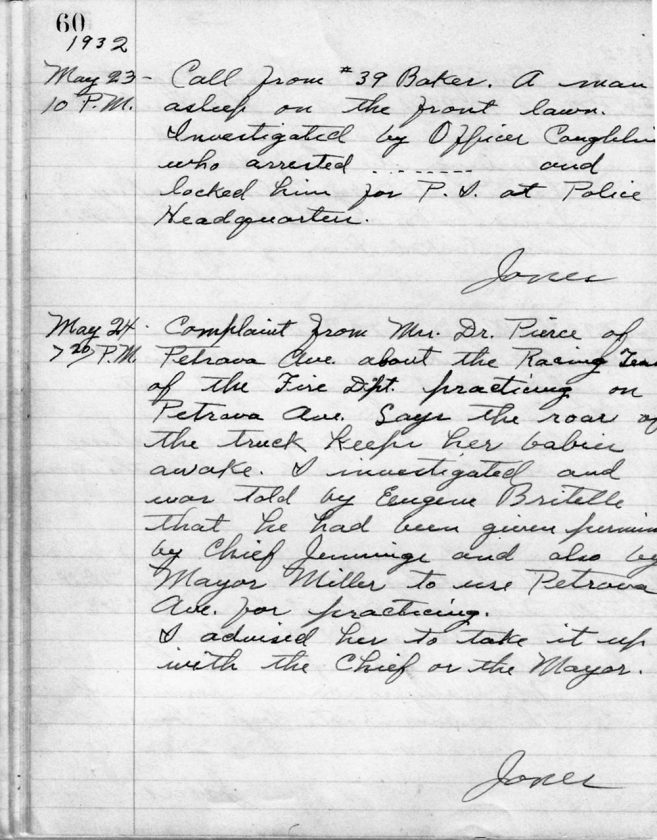 60
1932
May 23 - Call from #39 Baker. A man
10 P.M. asleep on the front lawn.
Investigated by Officer Coughlin
who arrested ........ and
locked him for P. I. at Police
Headquarters.
Jones
May 24 - Complaint from Mrs. Dr. Pierce of
7 20 P.M. Petrova Ave. about the Racing Team
of the Fire Dept. practicing on
Petrova Ave. Says the roar of
the truck keeps her babies
awake. I investigated and
was told by Eugene Britelle
that he had been given
by Chief Jennings and also by
Mayor Miller to use Petrova
Ave. for practicing.
I advised her to take it up
with the Chief or the Mayor.
Jones